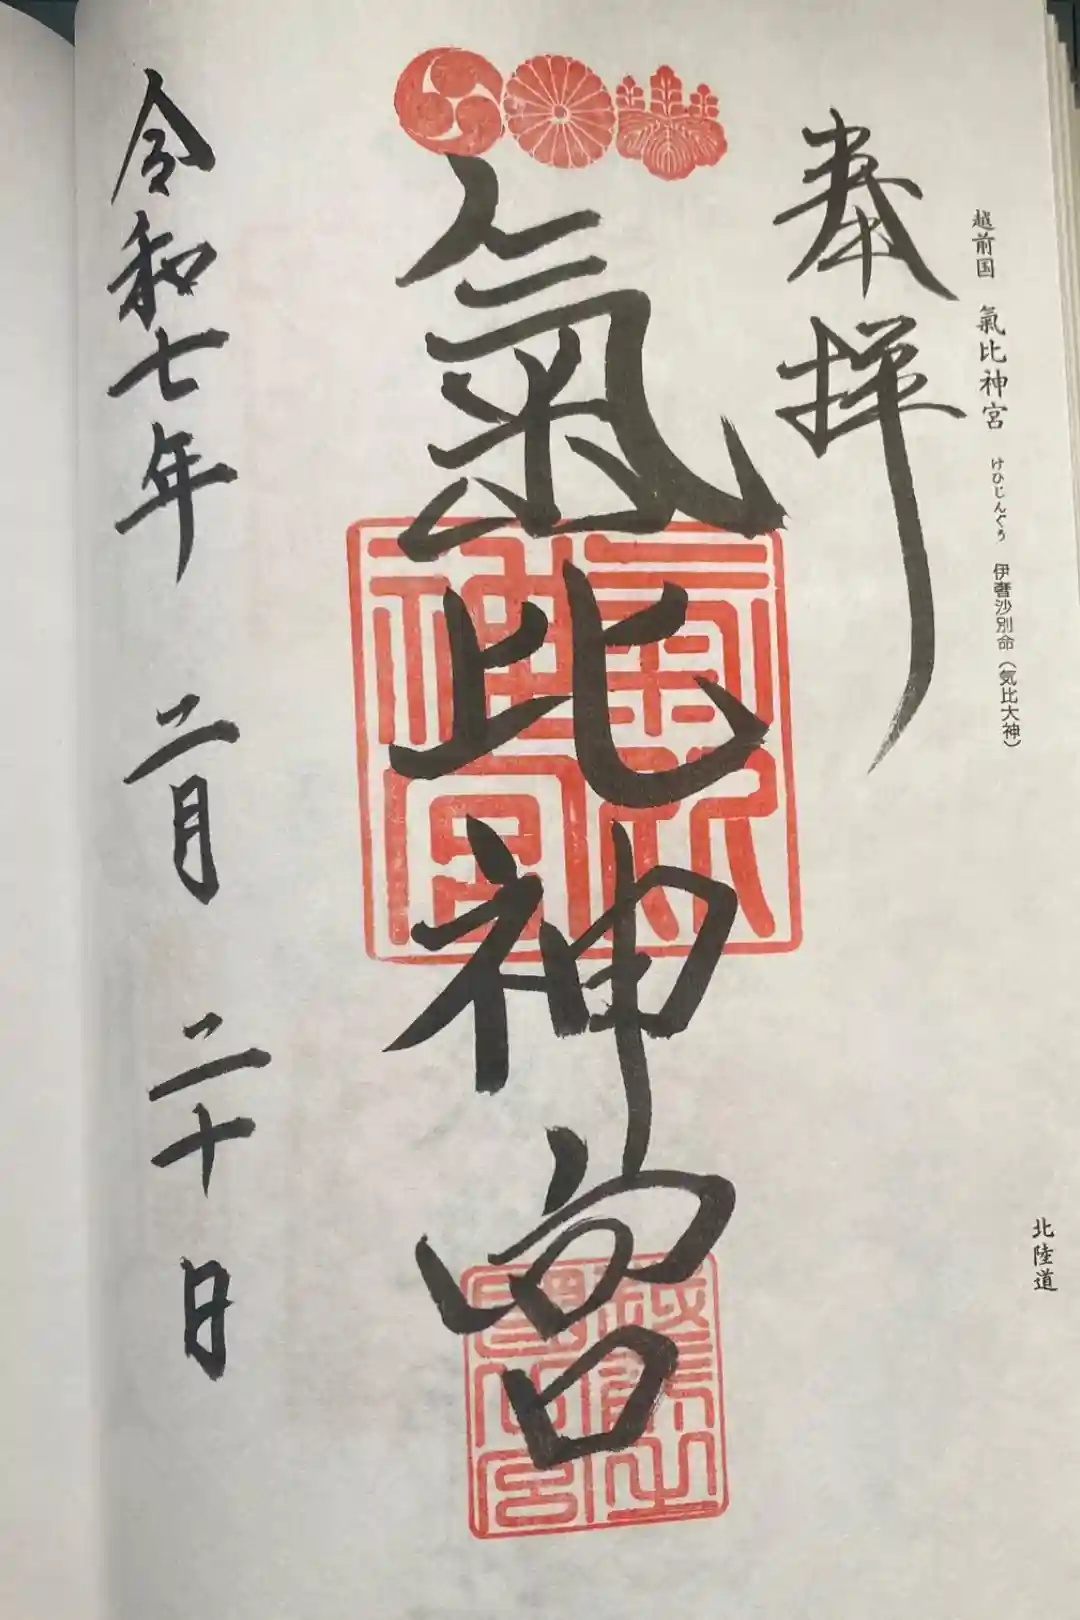 越前国 氣比神宮 けひじんぐう 伊奢沙別命（気比大神）
北陸道
奉拝
氣比神宮
氣比神宮
令和七年 二月 二十日